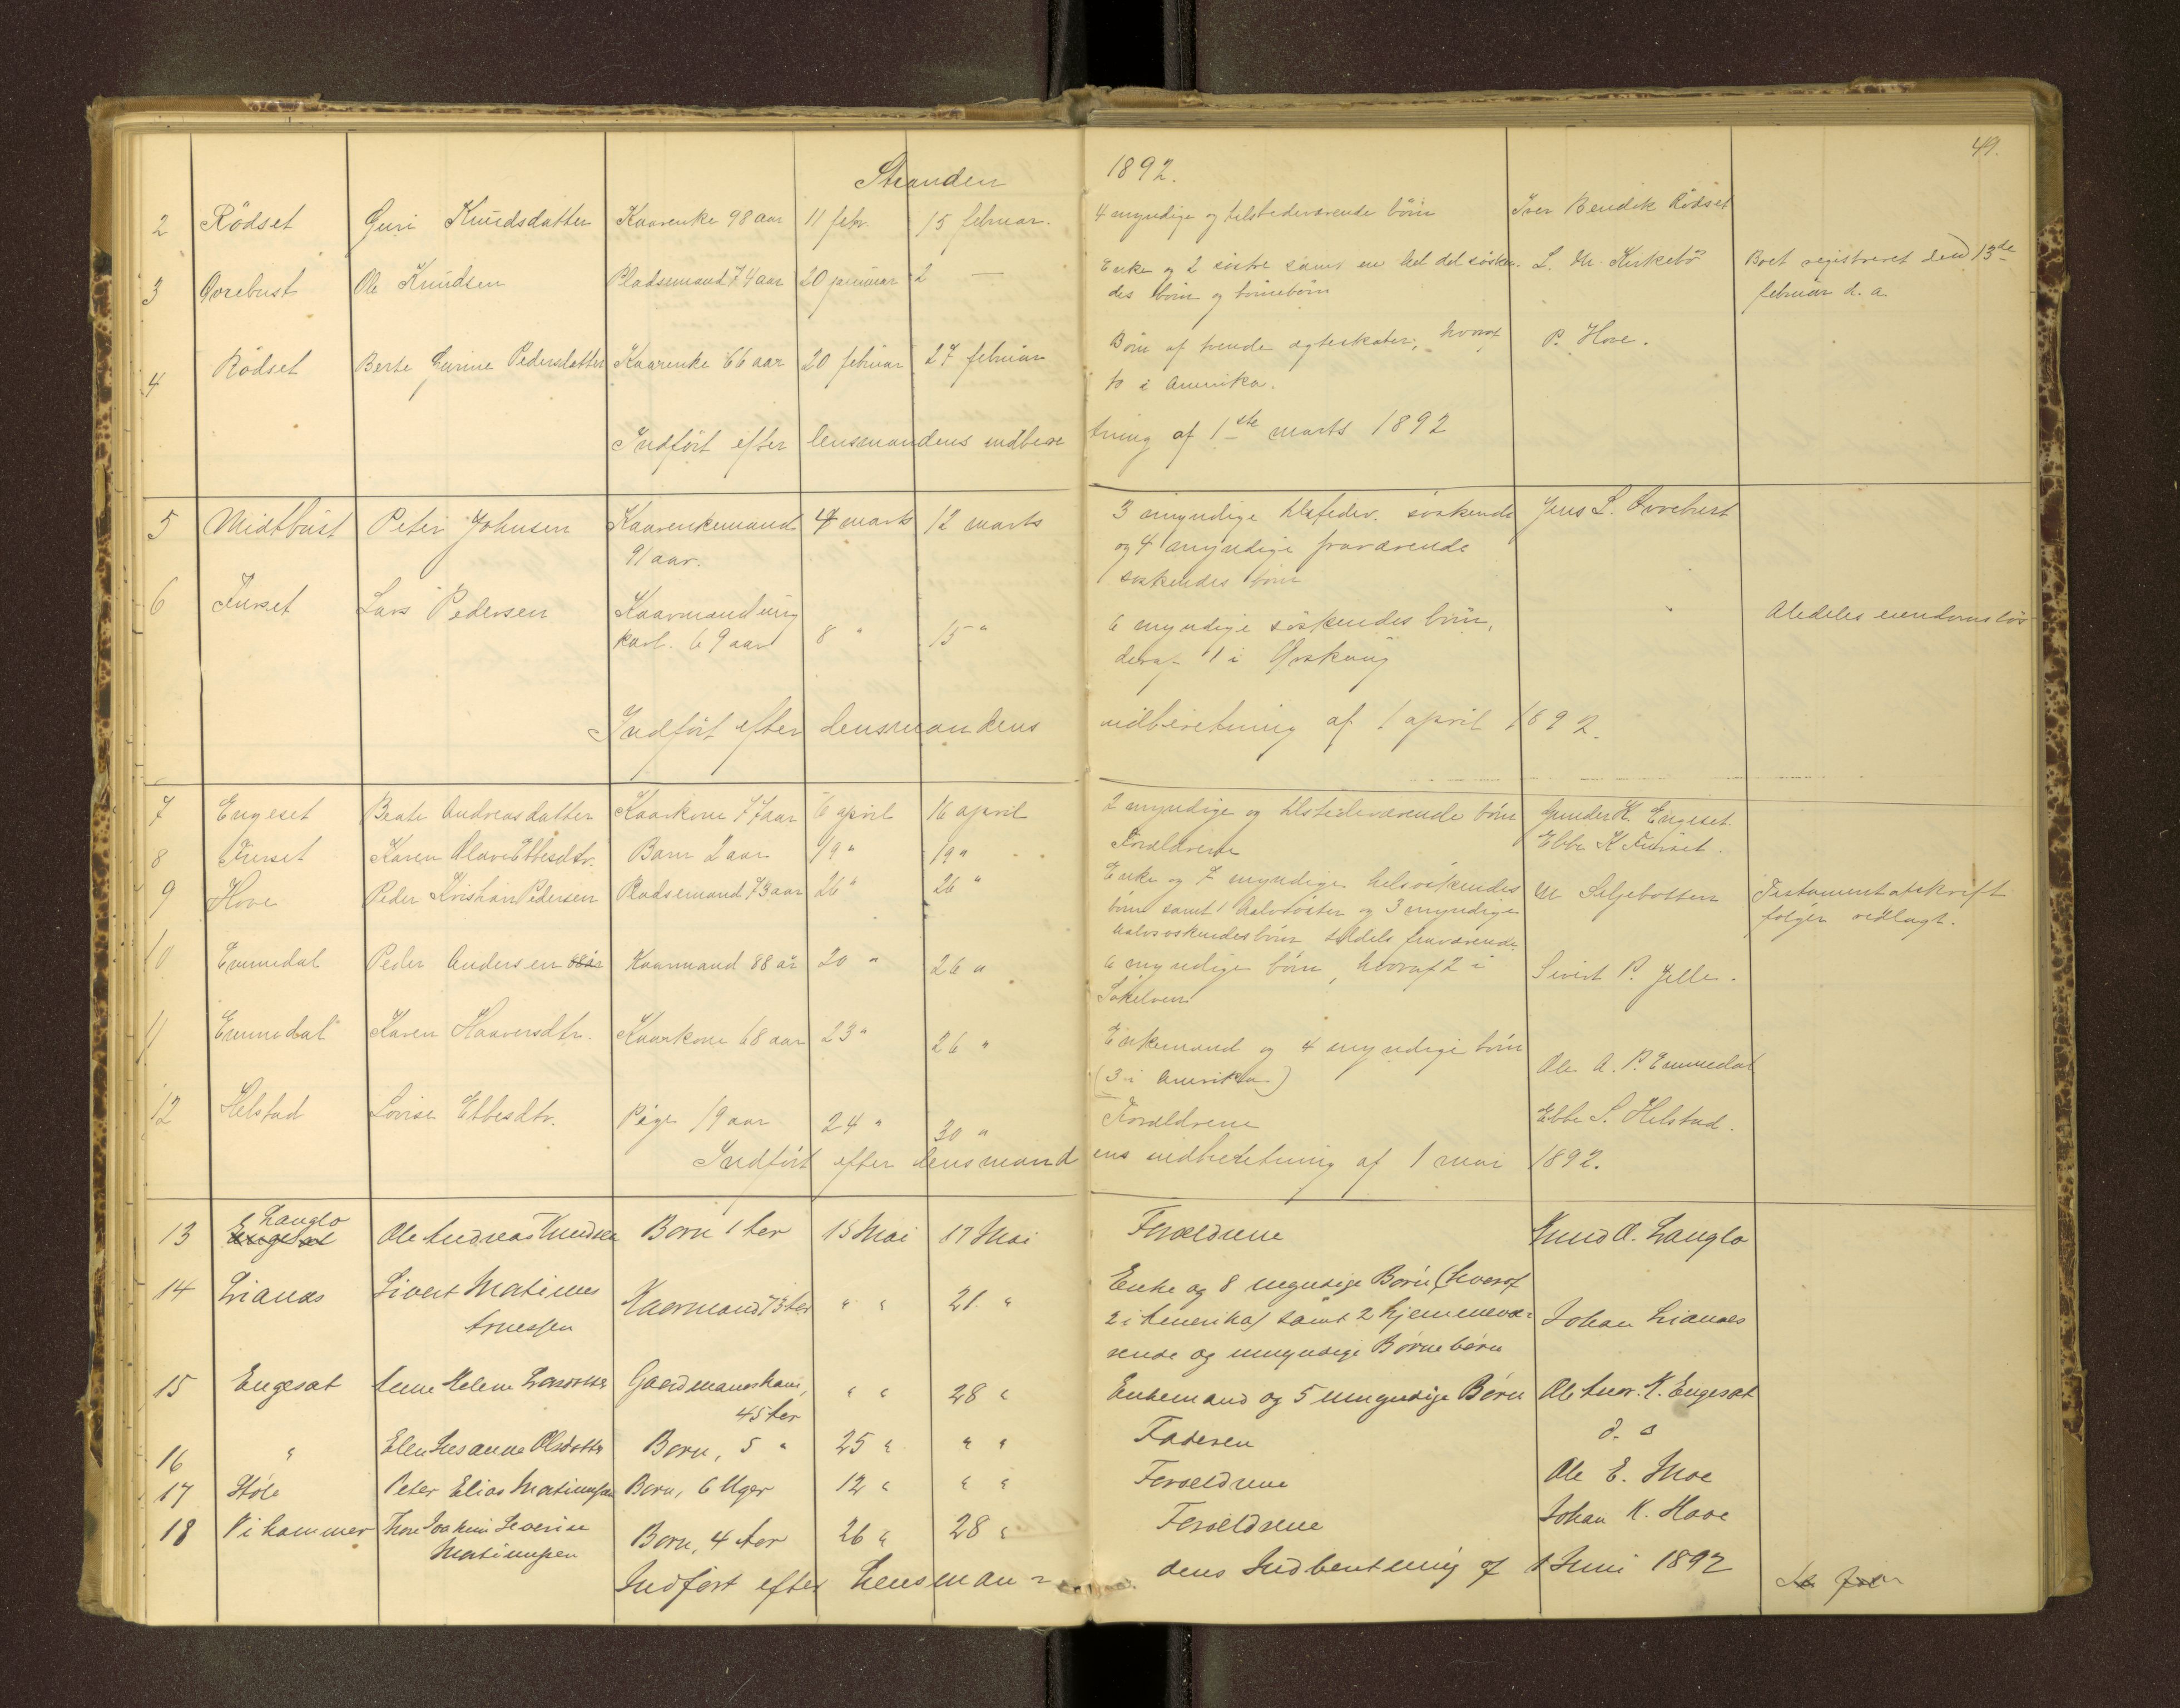 49.
Stranden 1892.
2 Rödset Guri Knudsdatter Kaarenke 98 aar 11 febr. 15 februar. 4 myndige og tilstedeværende börn Iver Bendik Rödset
3 Ovrebust Ole Knudsen Pladsemand 74 aar 20 januar 2 — Enke og 2 söstre samt en hel del sösken- L. M. Kirkebö Boet registreret den 13de
des börn og börnebörn februar d. a.
4 Rödset Berte Gurine Pedersdatter Kaarenke 66 aar 20 februar 27 februar Börn af tvende ægteskaber, hvoraf P. Hove.
to i Amerika.
Indfört efter lensmandens indberetning af 1ste marts 1892
5 Midtbust Peter Johnsen Kaarenkemand 4 marts 12 marts 3 myndige tilstedev. söskende Jens L. Ovrebust
91 aar. og 4 myndige fraværende
söskendes börn
6 Furset Lars Pedersen Kaarmand ung
karl. 69 aar 8 " 15 " 6 myndige söskendes börn, Aldeles eiendomslös
deraf 1 i Örskoug
Indfört efter lensmandens indberetning af 1 april 1892.
7 Engeset Beate Andreasdatter Kaarkone 77 aar 6 april 16 april 2 myndige og tilstedeværende börn Gunder K. Engeset.
8 Furset Karen Olave Ebbesdtr. Barn 2 aar 19 " 19 " Forældrene Ebbe K Furset.
9 Hove Peder Kristian Pedersen Pladsemand 73 aar 26 " 26 " Enke og 7 myndige helsöskendes M Seljebotten Testamentafskrift
börn samt 1 halvsöster og 3 myndige fölger vedlagt.
halvsöskendesbörn tildels fraværende.
10 Emmedal Peder Andersen Kaarmand 88 aar 20 " 26 " 6 myndige börn, hvoraf 2 i Sivert P. Jelle.
Sökelven
11 Emmedal Karen Haaversdtr. Kaarkone 68 aar 23 " 26 " Enkemand og 4 myndige börn Ole A. P. Emmedal
(3 i Amerika)
12 Helstad Lovise Ebbesdtr. Pige 19 aar 24 " 30 " Forældrene Ebbe S. Helstad.
Indfört efter lensmandens indberetning af 1 mai 1892.
Langlo
13 Engeset Ole Andreas Knudsen Barn 1 Aar 15 Mai 17 Mai Forældrene Knud O. Langlo
14 Lianæs Sivert Matias Kaarmand 73 Aar " " 21 " Enke og 8 myndige Börn (hvoraf
Arnessen 2 i Amerika) samt 2 hjemmevæ= Johan Lianæs
rende og umyndige Børnebørn
15 Engesæt Anne Helene Larsdtter Gaardmandskone, " " 28 " Enkemand og 5 umyndige Børn Ole Andr. K. Engesæt
45 Aar
16 " Elen Susanne Olsdotter Barn, 5 " 25 " " " Faderen d. o
17 Støle Peter Elias Martinussen Barn, 6 Uger 12 " " " Forældrene Ole E. Moe
18 Vikammer Thore Joakim Severin Barn, 4 Aar 26 " 28 " Forældrene Johan K. Hove
Martinussen
Indført efter Lensman= dens Indberetning af 1 Juni 1892